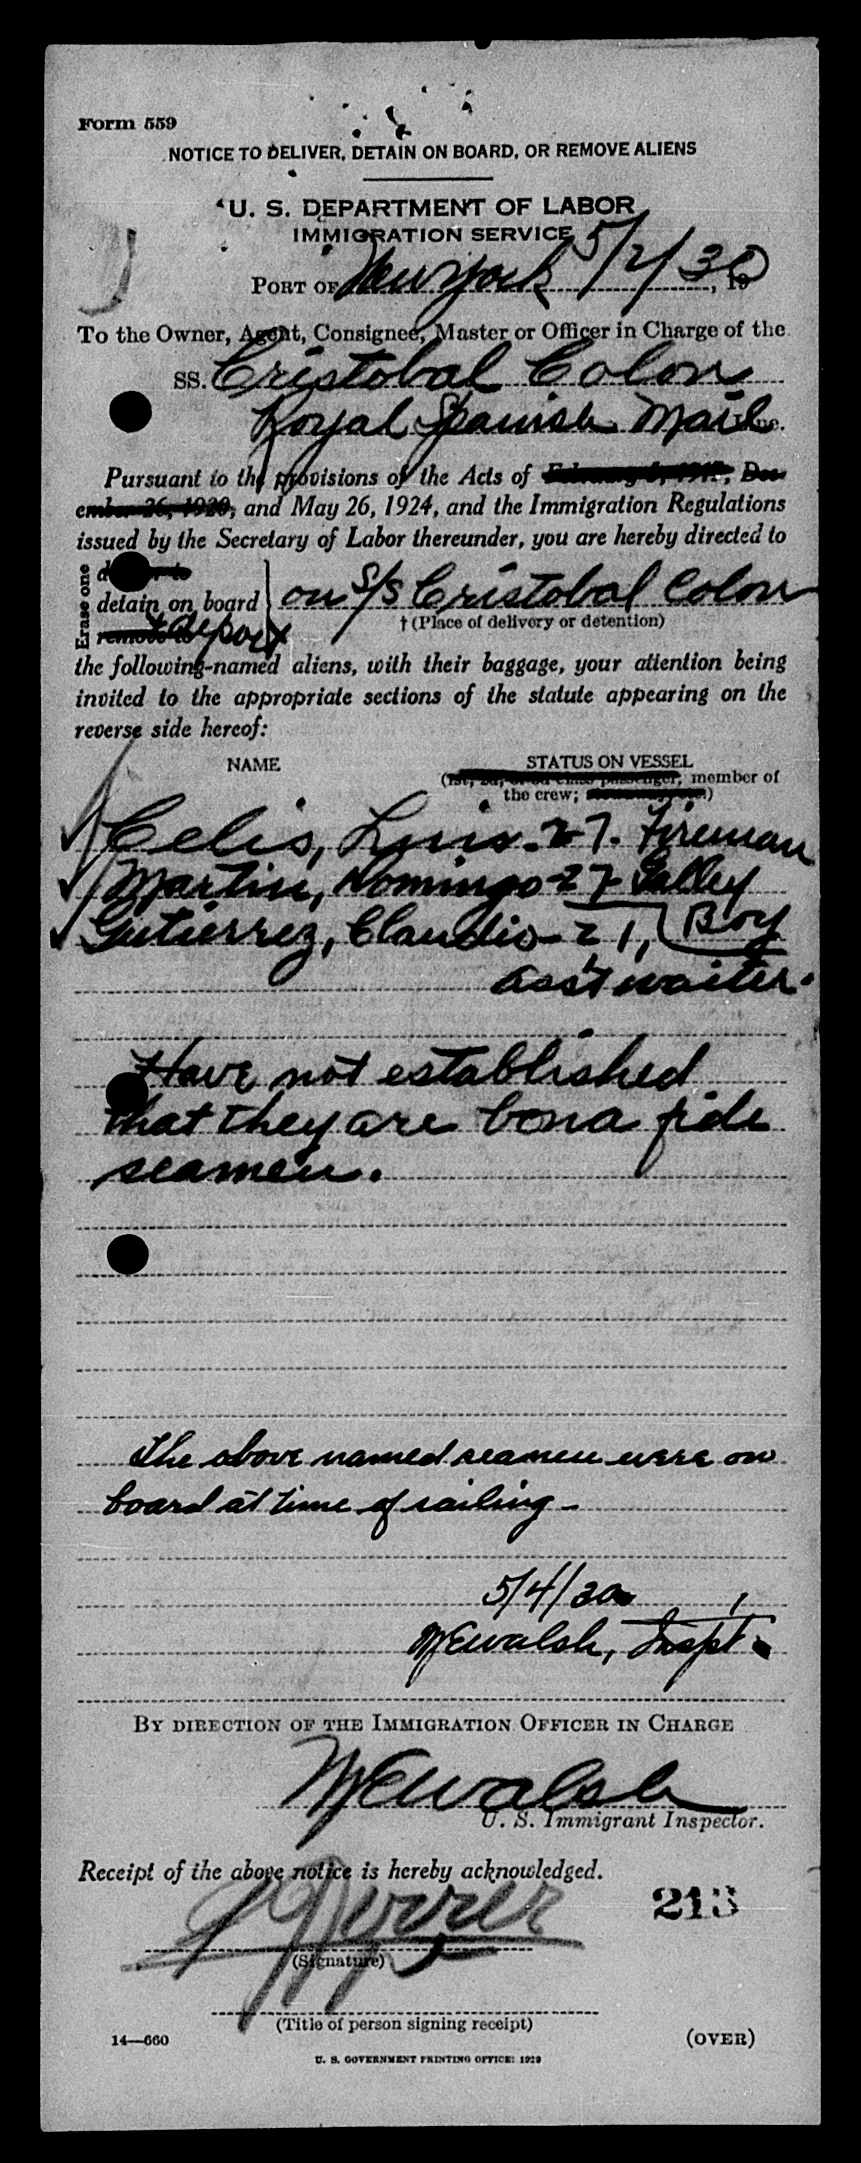 Form 559
NOTICE TO DELIVER, DETAIN ON BOARD, OR REMOVE ALIENS
U. S. DEPARTMENT OF LABOR
IMMIGRATION SERVICE
PORT OF New York 5/2/30, 19
To the Owner, Agent, Consignee, Master or Officer in Charge of the
SS. Cristobal Colon
Royal Spanish Mail Line.
Pursuant to the provisions of the Acts of February 5, 1917, Dec-
ember 26, 1920, and May 26, 1924, and the Immigration Regulations
issued by the Secretary of Labor thereunder, you are hereby directed to
Erase one
detain on board on S/S Cristobal Colon
† (Place of delivery or detention)
remove to & deport
the following-named aliens, with their baggage, your attention being
invited to the appropriate sections of the statute appearing on the
reverse side hereof:
NAME STATUS ON VESSEL
(1st, 2d, or 3d class passenger, member of
the crew;)
Celis, Luis. 27. Fireman
Martin, Domingo - 27 Galley
Gutierrez, Claudio - 21, Boy
ass't waiter.
Have not established
that they are bona fide
seamen.
The above named seamen were on
board at time of sailing -
5/4/30
MEWalsh, Inspt.
BY DIRECTION OF THE IMMIGRATION OFFICER IN CHARGE
MEWalsh
U. S. Immigrant Inspector.
Receipt of the above notice is hereby acknowledged.
213
(Signature)
(Title of person signing receipt)
14—660 (OVER)
U. S. GOVERNMENT PRINTING OFFICE: 1929